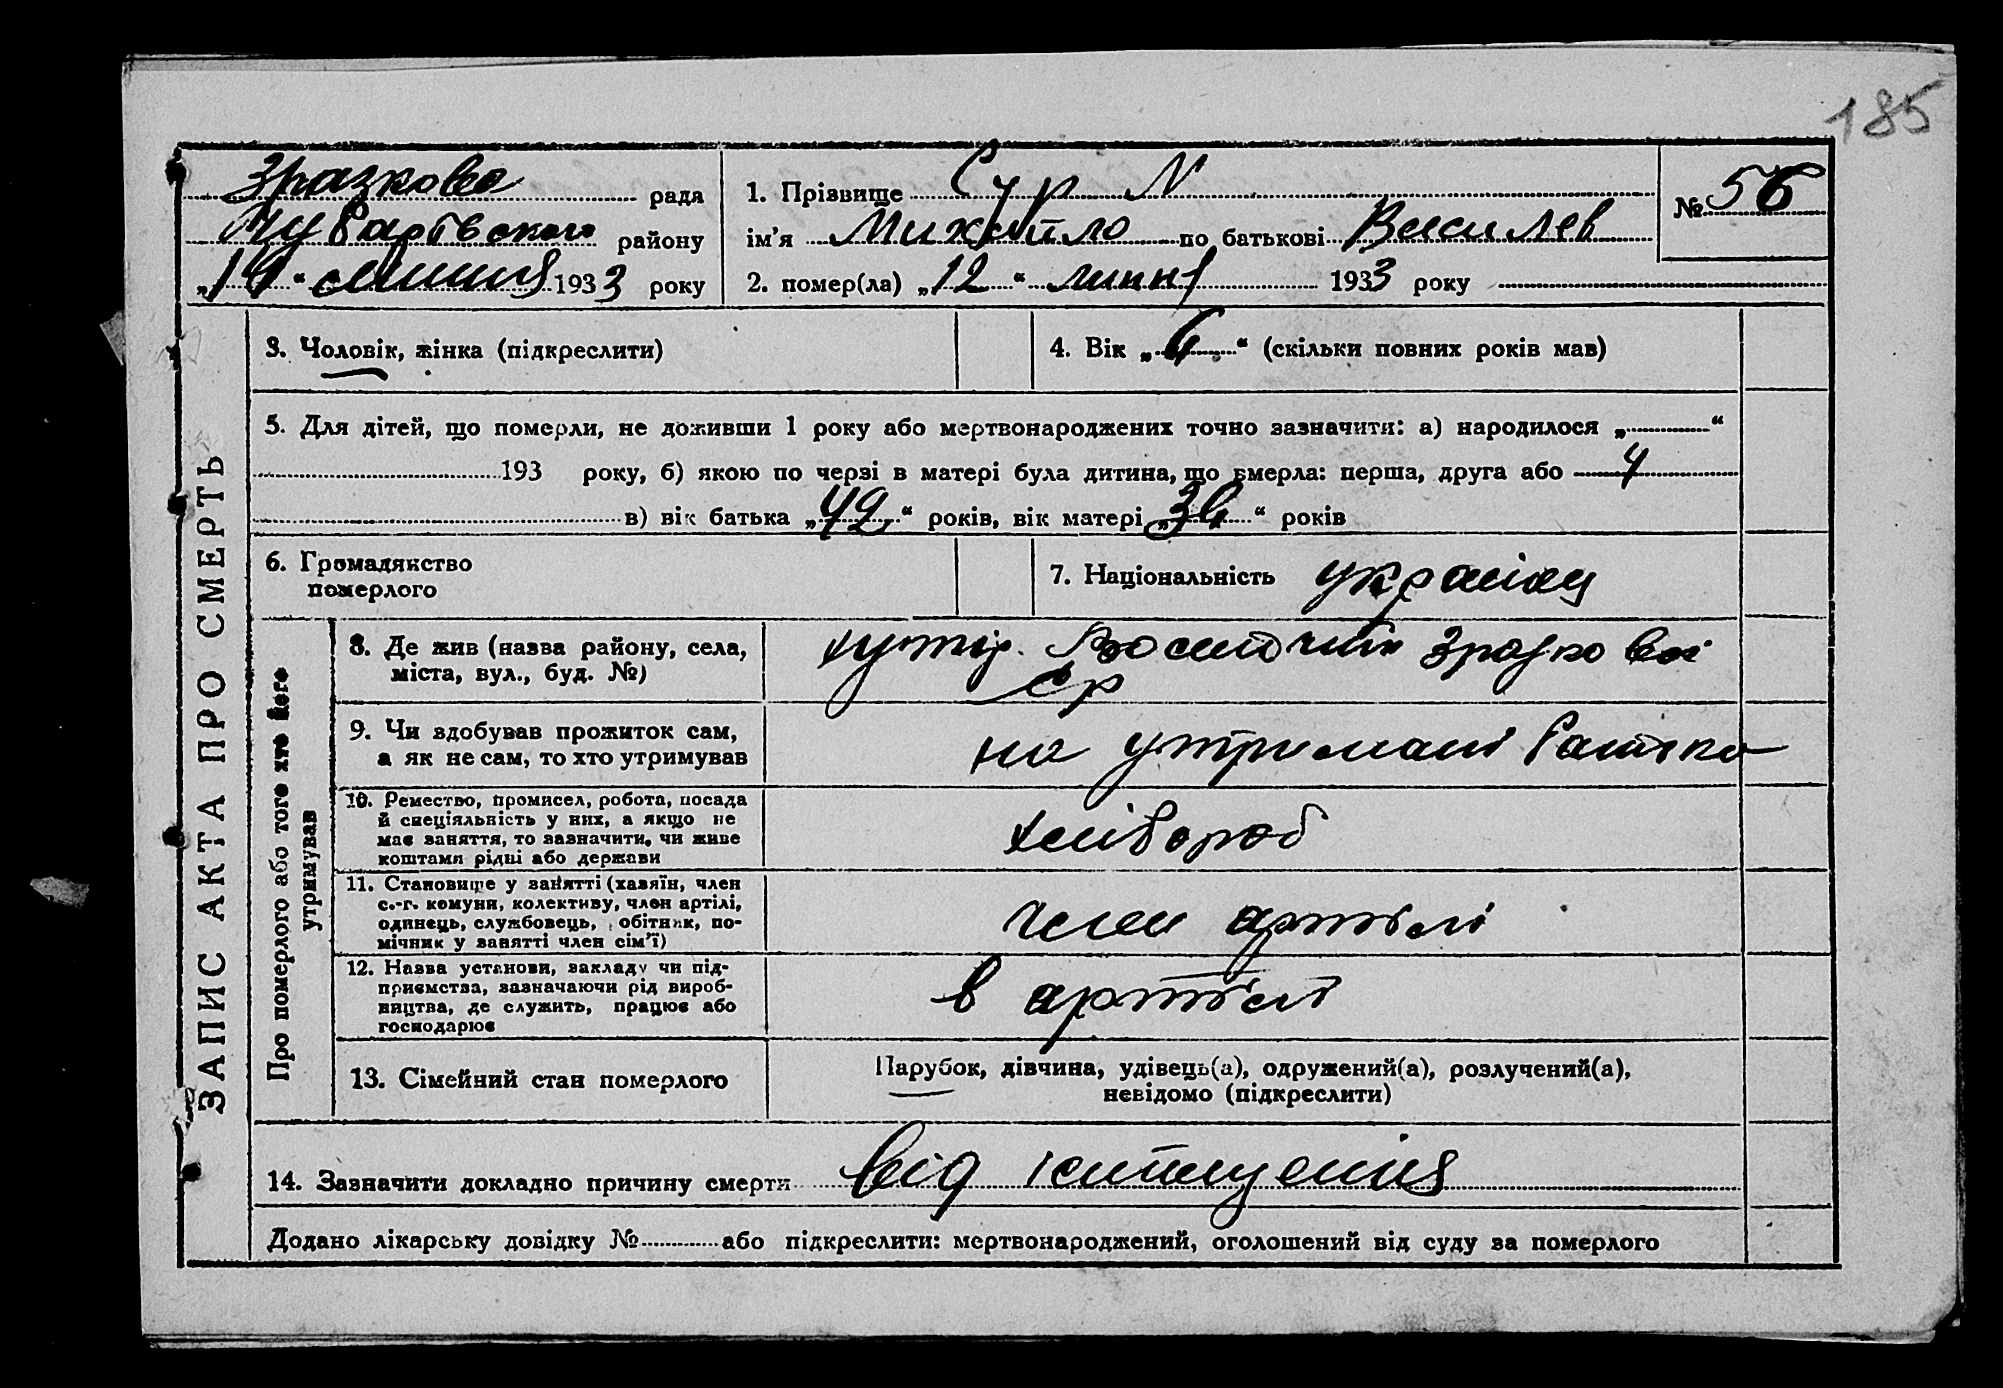 185
Зразкова рада
Чубарівського району
„ “ липня 1933 року
1. Прізвище Сур
№ 56
ім’я Михайло по батькові Василев
2. помер(ла) „12“ липня 1933 року
ЗАПИС АКТА ПРО СМЕРТЬ
3. Чоловік, жінка (підкреслити)
4. Вік „6“ (скільки повних років мав)
5. Для дітей, що померли, не доживши 1 року або мертвонароджених точно зазначити: а) народилося „ “
193 року, б) якою по черзі в матері була дитина, що вмерла: перша, друга або 4
в) вік батька „42“ років, вік матері „36“ років
6. Громадянство
померлого
7. Національність українц
Про померлого або того хто його
утримував
8. Де жив (назва району, села,
міста, вул., буд. №)
хутір Зразкової
ср
9. Чи здобував прожиток сам,
а як не сам, то хто утримував
на утримані батька
10. Ремество, промисел, робота, посада
й спеціяльність у них, а якщо не
має заняття, то зазначити, чи живе
коштами рідні або держави
хлібороб
11. Становище у занятті (хазяїн, член
с.-г. комуни, колективу, член артілі,
одинець, службовець, обітник, по-
мічник у занятті член сім’ї)
член артілі
12. Назва установи, закладу чи під-
приємства, зазначаючи рід вироб-
ництва, де служить, працює або
господарює
в артілі
13. Сімейний стан померлого
Парубок, дівчина, удівець(а), одружений(а), розлучений(а),
невідомо (підкреслити)
14. Зазначити докладно причину смерти від
Додано лікарську довідку № або підкреслити: мертвонароджений, оголошений від суду за померлого